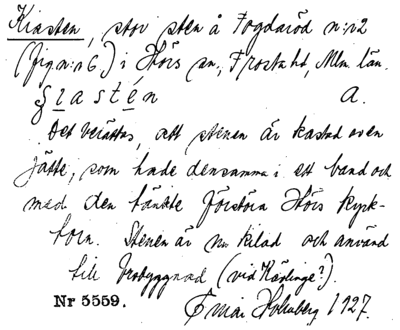 Kiasten, stor sten å Fogdaröd n:r 2
(fig. n:r 6.) i Hörs sn, Frosta hd, Mlm. län.
a.
Det berättas, att stenen är kastad av en
jätte, som hade densamma i ett band och
med den tänkte förstöra Hörs kyrk-
torn. Stenen är nu kilad och använd
till brobyggnad (vid Kävlinge?).
Nr 5559. Holmberg 1927.